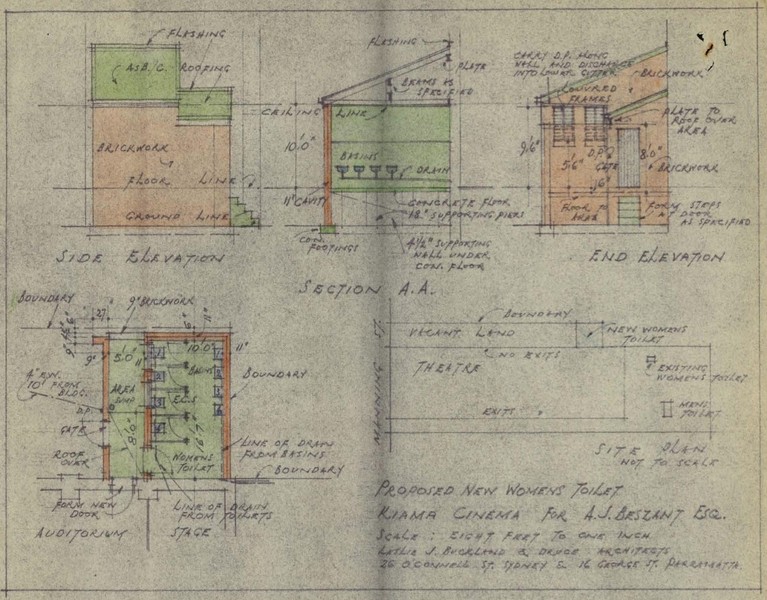 FLASHING
ASB/C. ROOFING
BRICKWORK
FLOOR LINE
GROUND LINE
SIDE ELEVATION
FLASHING
PLATE
BEAMS AS
SPECIFIED
CEILING LINE
10'.0"
BASINS
DRAIN
11" CAVITY
CONCRETE FLOOR
SUPPORTING PIERS
CON.
FOOTINGS
4½" SUPPORTING
WALL UNDER
CON. FLOOR
SECTION A.A.
CARRY D.P. ALONG
WALL AND DISCHARGE
INTO LOWER GUTTER
BRICKWORK
LOUVRED
FRAMES
PLATE TO
ROOF OVER
AREA
9'.6"
5'.6"
D.P.
GATE
8'.0"
BRICKWORK
FLOOR TO
AREA
FORM STEPS
AT DOOR
AS SPECIFIED
END ELEVATION
BOUNDARY
9" BRICKWORK
11"
9"
5'.0"
11"
10'.0"
11"
BASINS
4" E.W.
10' FROM
BLDG.
AREA
E.C.S
BOUNDARY
D.P.
GATE
8'.0"
16'.7"
ROOF
OVER
WOMENS
TOILET
LINE OF DRAIN
FROM BASINS
BOUNDARY
FORM NEW
DOOR
LINE OF DRAIN
FROM TOILETS
AUDITORIUM STAGE
MANNING ST.
BOUNDARY
VACANT LAND
NEW WOMENS
TOILET
NO EXITS
THEATRE
EXISTING
WOMENS TOILET
EXITS
MENS
TOILET
SITE PLAN
NOT TO SCALE
PROPOSED NEW WOMENS TOILET
KIAMA CINEMA FOR A.J. BESZANT ESQ.
SCALE: EIGHT FEET TO ONE INCH
LESLIE J. BUCKLAND & DRUCE ARCHITECTS
26 O'CONNELL ST. SYDNEY & 16 GEORGE ST. PARRAMATTA.